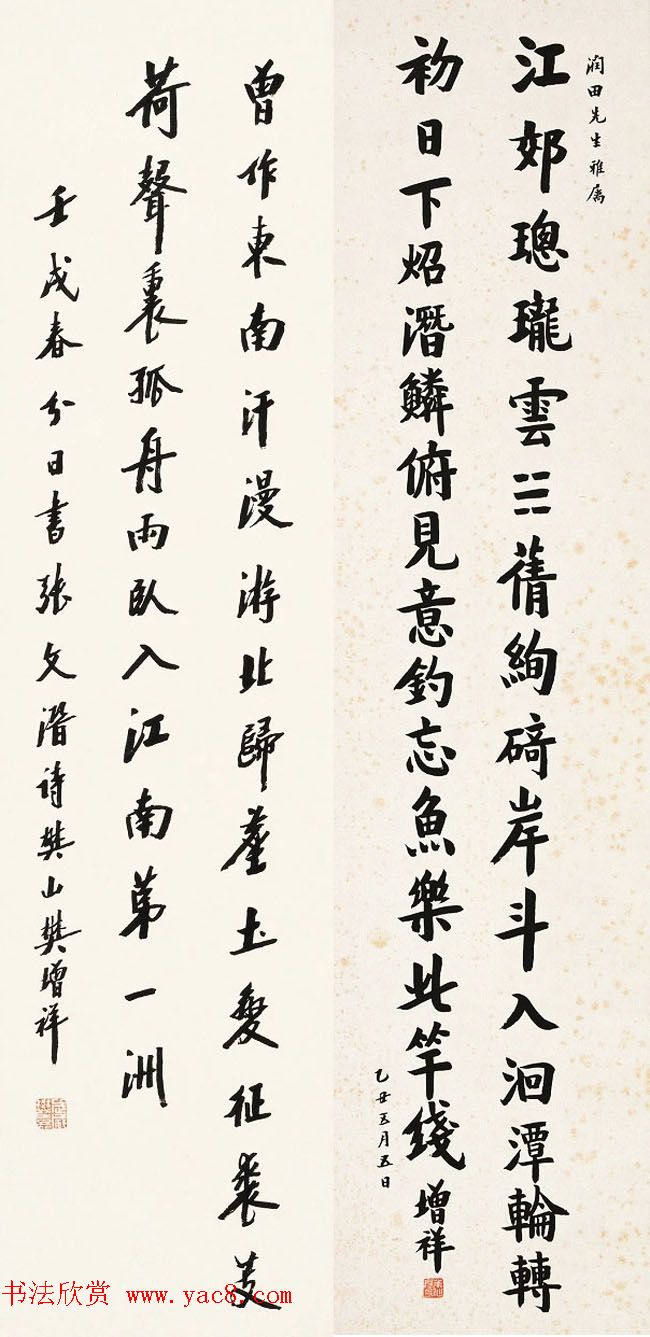 潤田先生雅属
江郊璁瓏雲☵蒨絢碕岸斗入洄潭輪轉
初日下炤潛鱗俯見意釣忘魚樂此竿綫
乙丑五月五日
增祥
曾作東南汗漫游北歸塵土變征裘芰
荷聲裏孤舟雨臥入江南第一洲
壬戌春分日書張文潛詩樊山樊增祥
书法欣赏 www.yac8.com